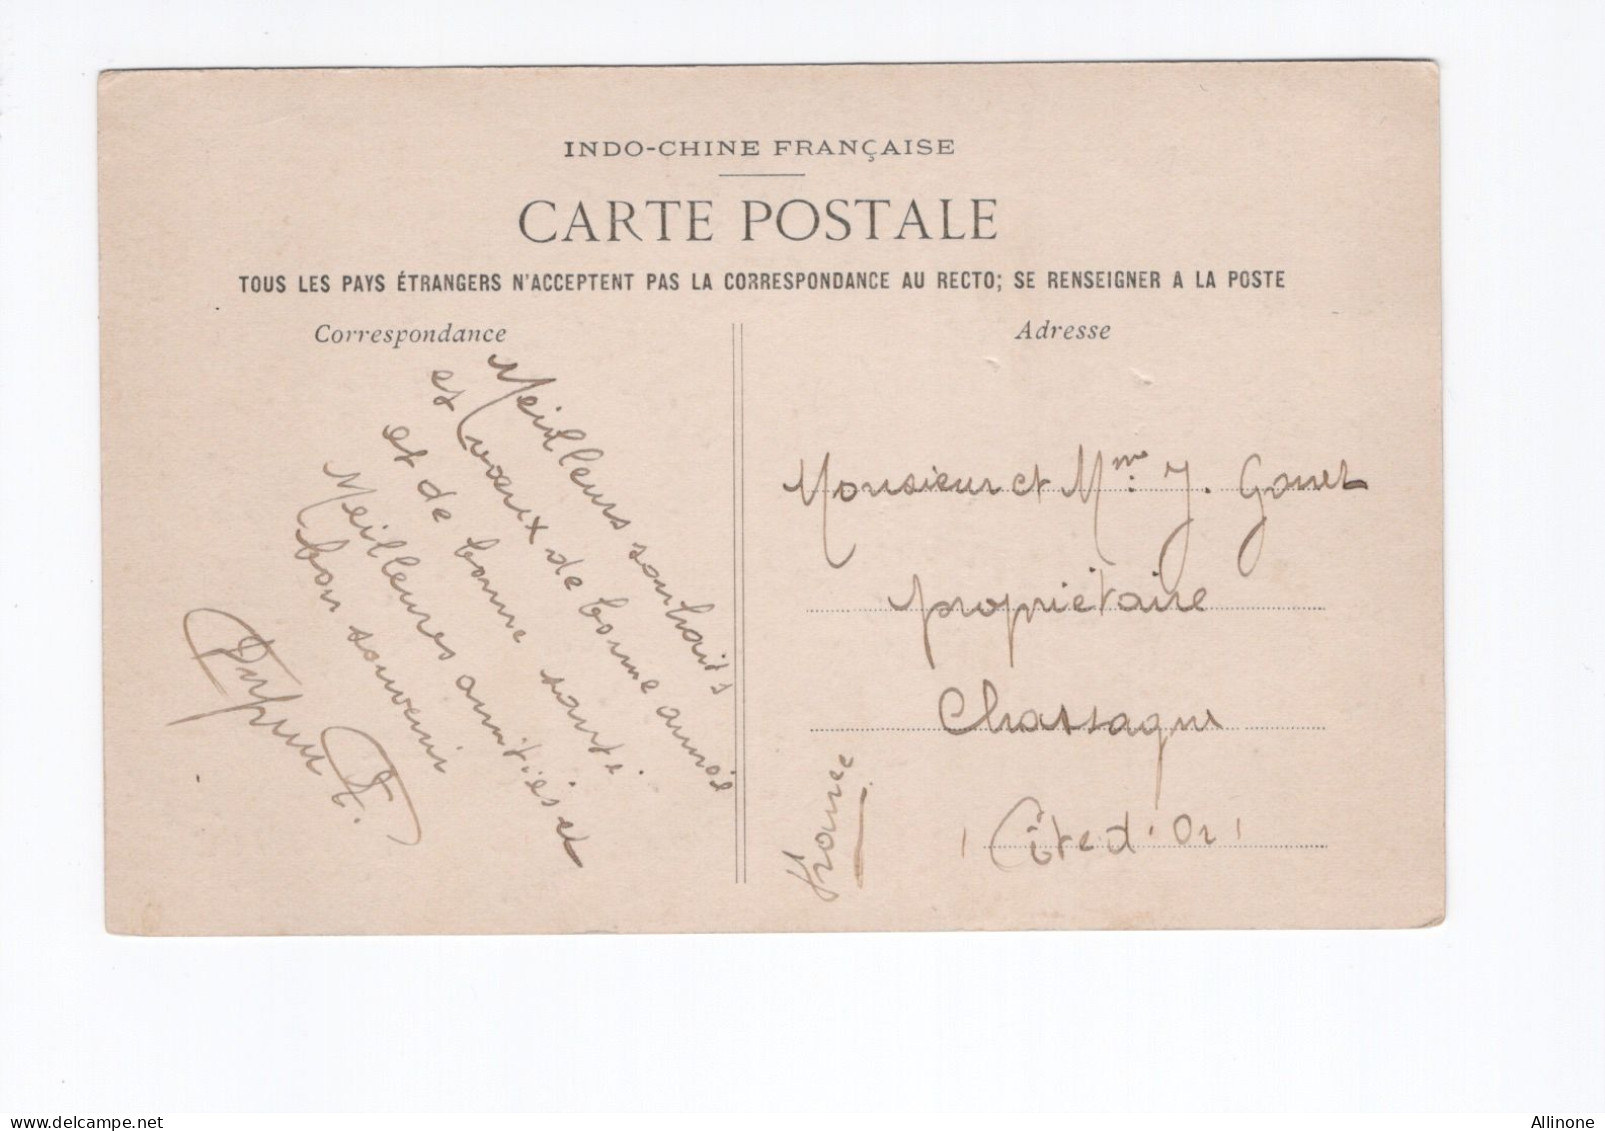 INDO-CHINE FRANÇAISE
CARTE POSTALE
TOUS LES PAYS ÉTRANGERS N'ACCEPTENT PAS LA CORRESPONDANCE AU RECTO; SE RENSEIGNER A LA POSTE
Correspondance
Meilleurs souhaits
et vœux de bonne année
et de bonne santé
Meilleures amitiés et
bon souvenir
Adresse
Monsieur et Mme J.
propriétaire
Chassagne
(Côte d'Or)
France
Allinone